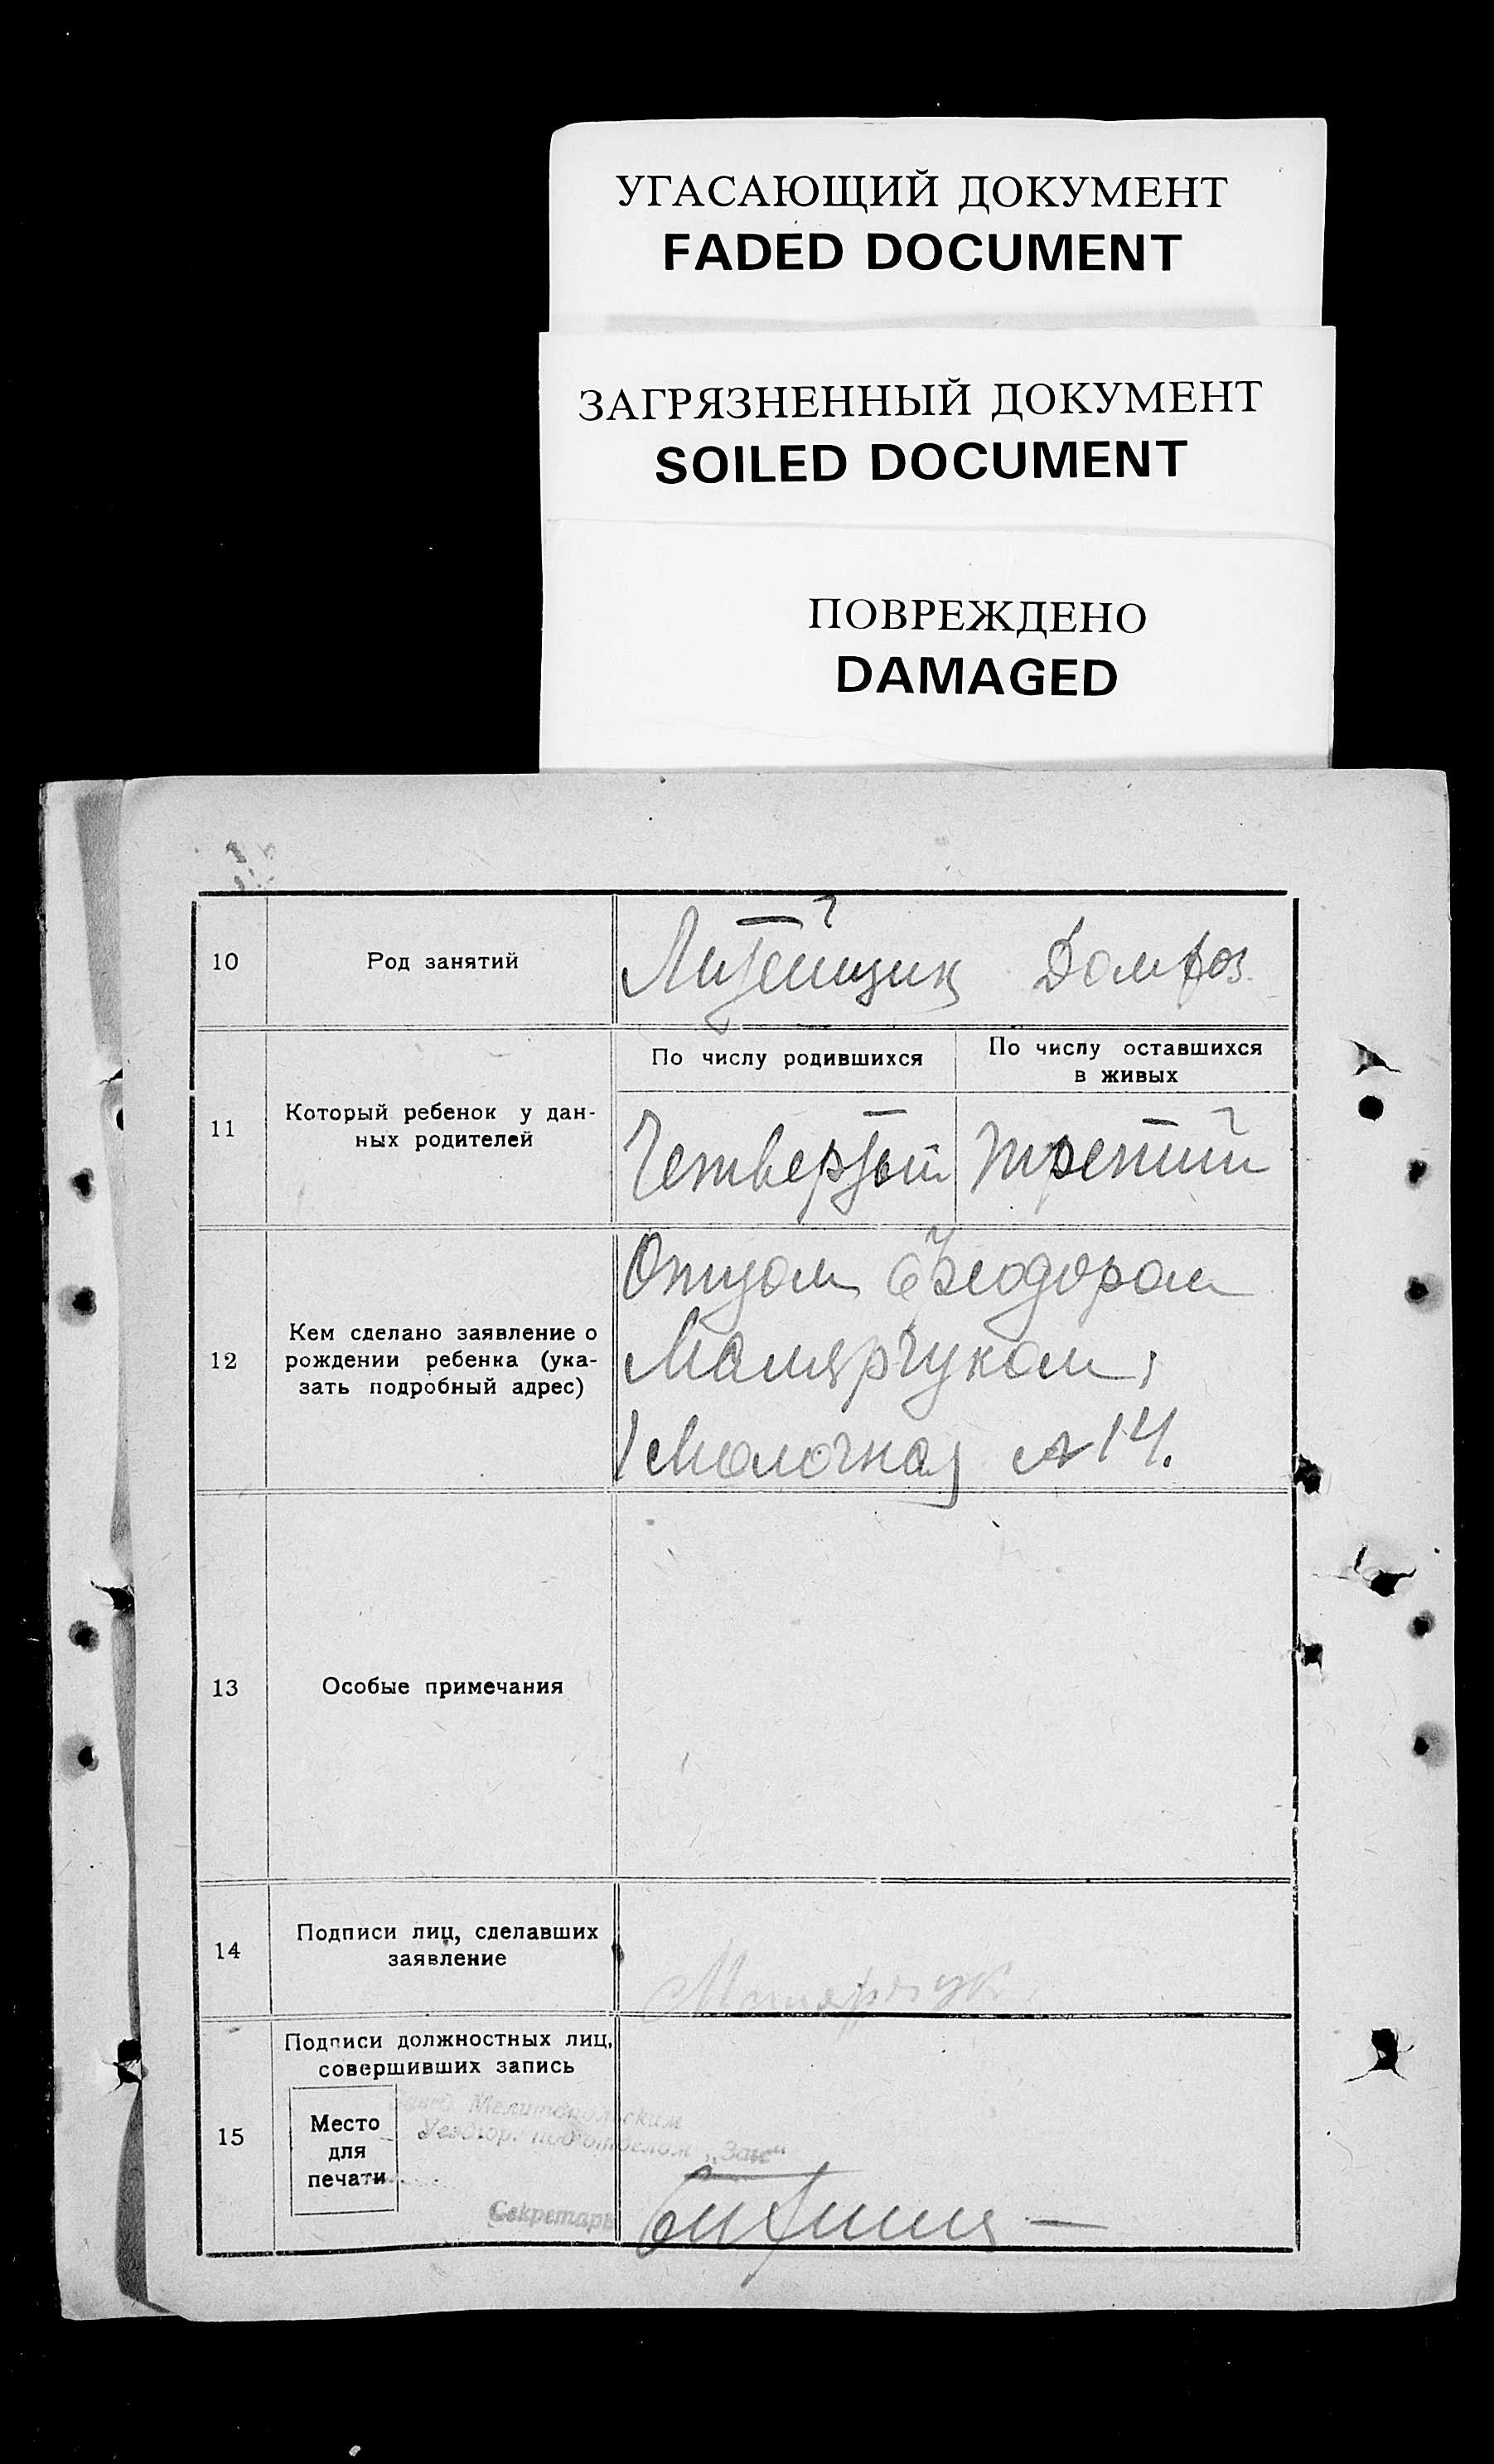 УГАСАЮЩИЙ ДОКУМЕНТ
FADED DOCUMENT
ЗАГРЯЗНЕННЫЙ ДОКУМЕНТ
SOILED DOCUMENT
ПОВРЕЖДЕНО
DAMAGED
10
Род занятий
Литейщик Домхоз.
11
Который ребенок у дан-
ных родителей
По числу родившихся
По числу оставшихся
в живых
Четвертый
третий
12
Кем сделано заявление о
рождении ребенка (ука-
зать подробный адрес)
Отцом Феодором
Малярчуком,
Молочная № 14.
13
Особые примечания
14
Подписи лиц, сделавших
заявление
Малярчук
15
Подписи должностных лиц,
совершивших запись
Место
для
печати
Завед. Мелитопольским
подотделом „Загс“
Секретарь